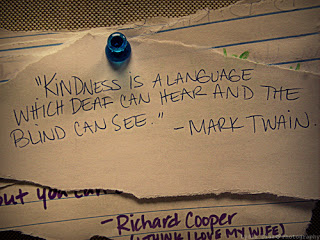 "KINDNESS IS A LANGUAGE
WHICH DEAF CAN HEAR AND THE
BLIND CAN SEE." -MARK TWAIN.
out you
-Richard Cooper
(I THINK I LOVE MY WIFE)